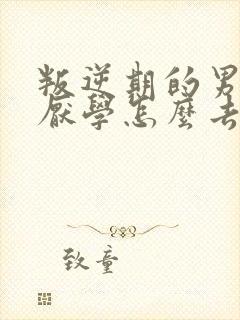 叛逆期的男
厭學怎麼去
致童